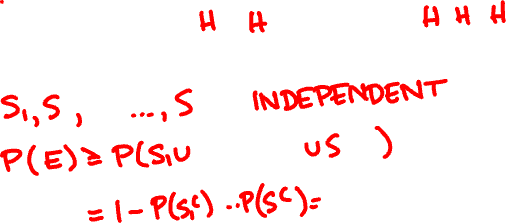 H H H H H
S₁, S , ..., S INDEPENDENT
P(E) ≥ P(S₁ ∪ ∪ S )
= 1 - P(S₁ᶜ) ·· P(Sᶜ) =